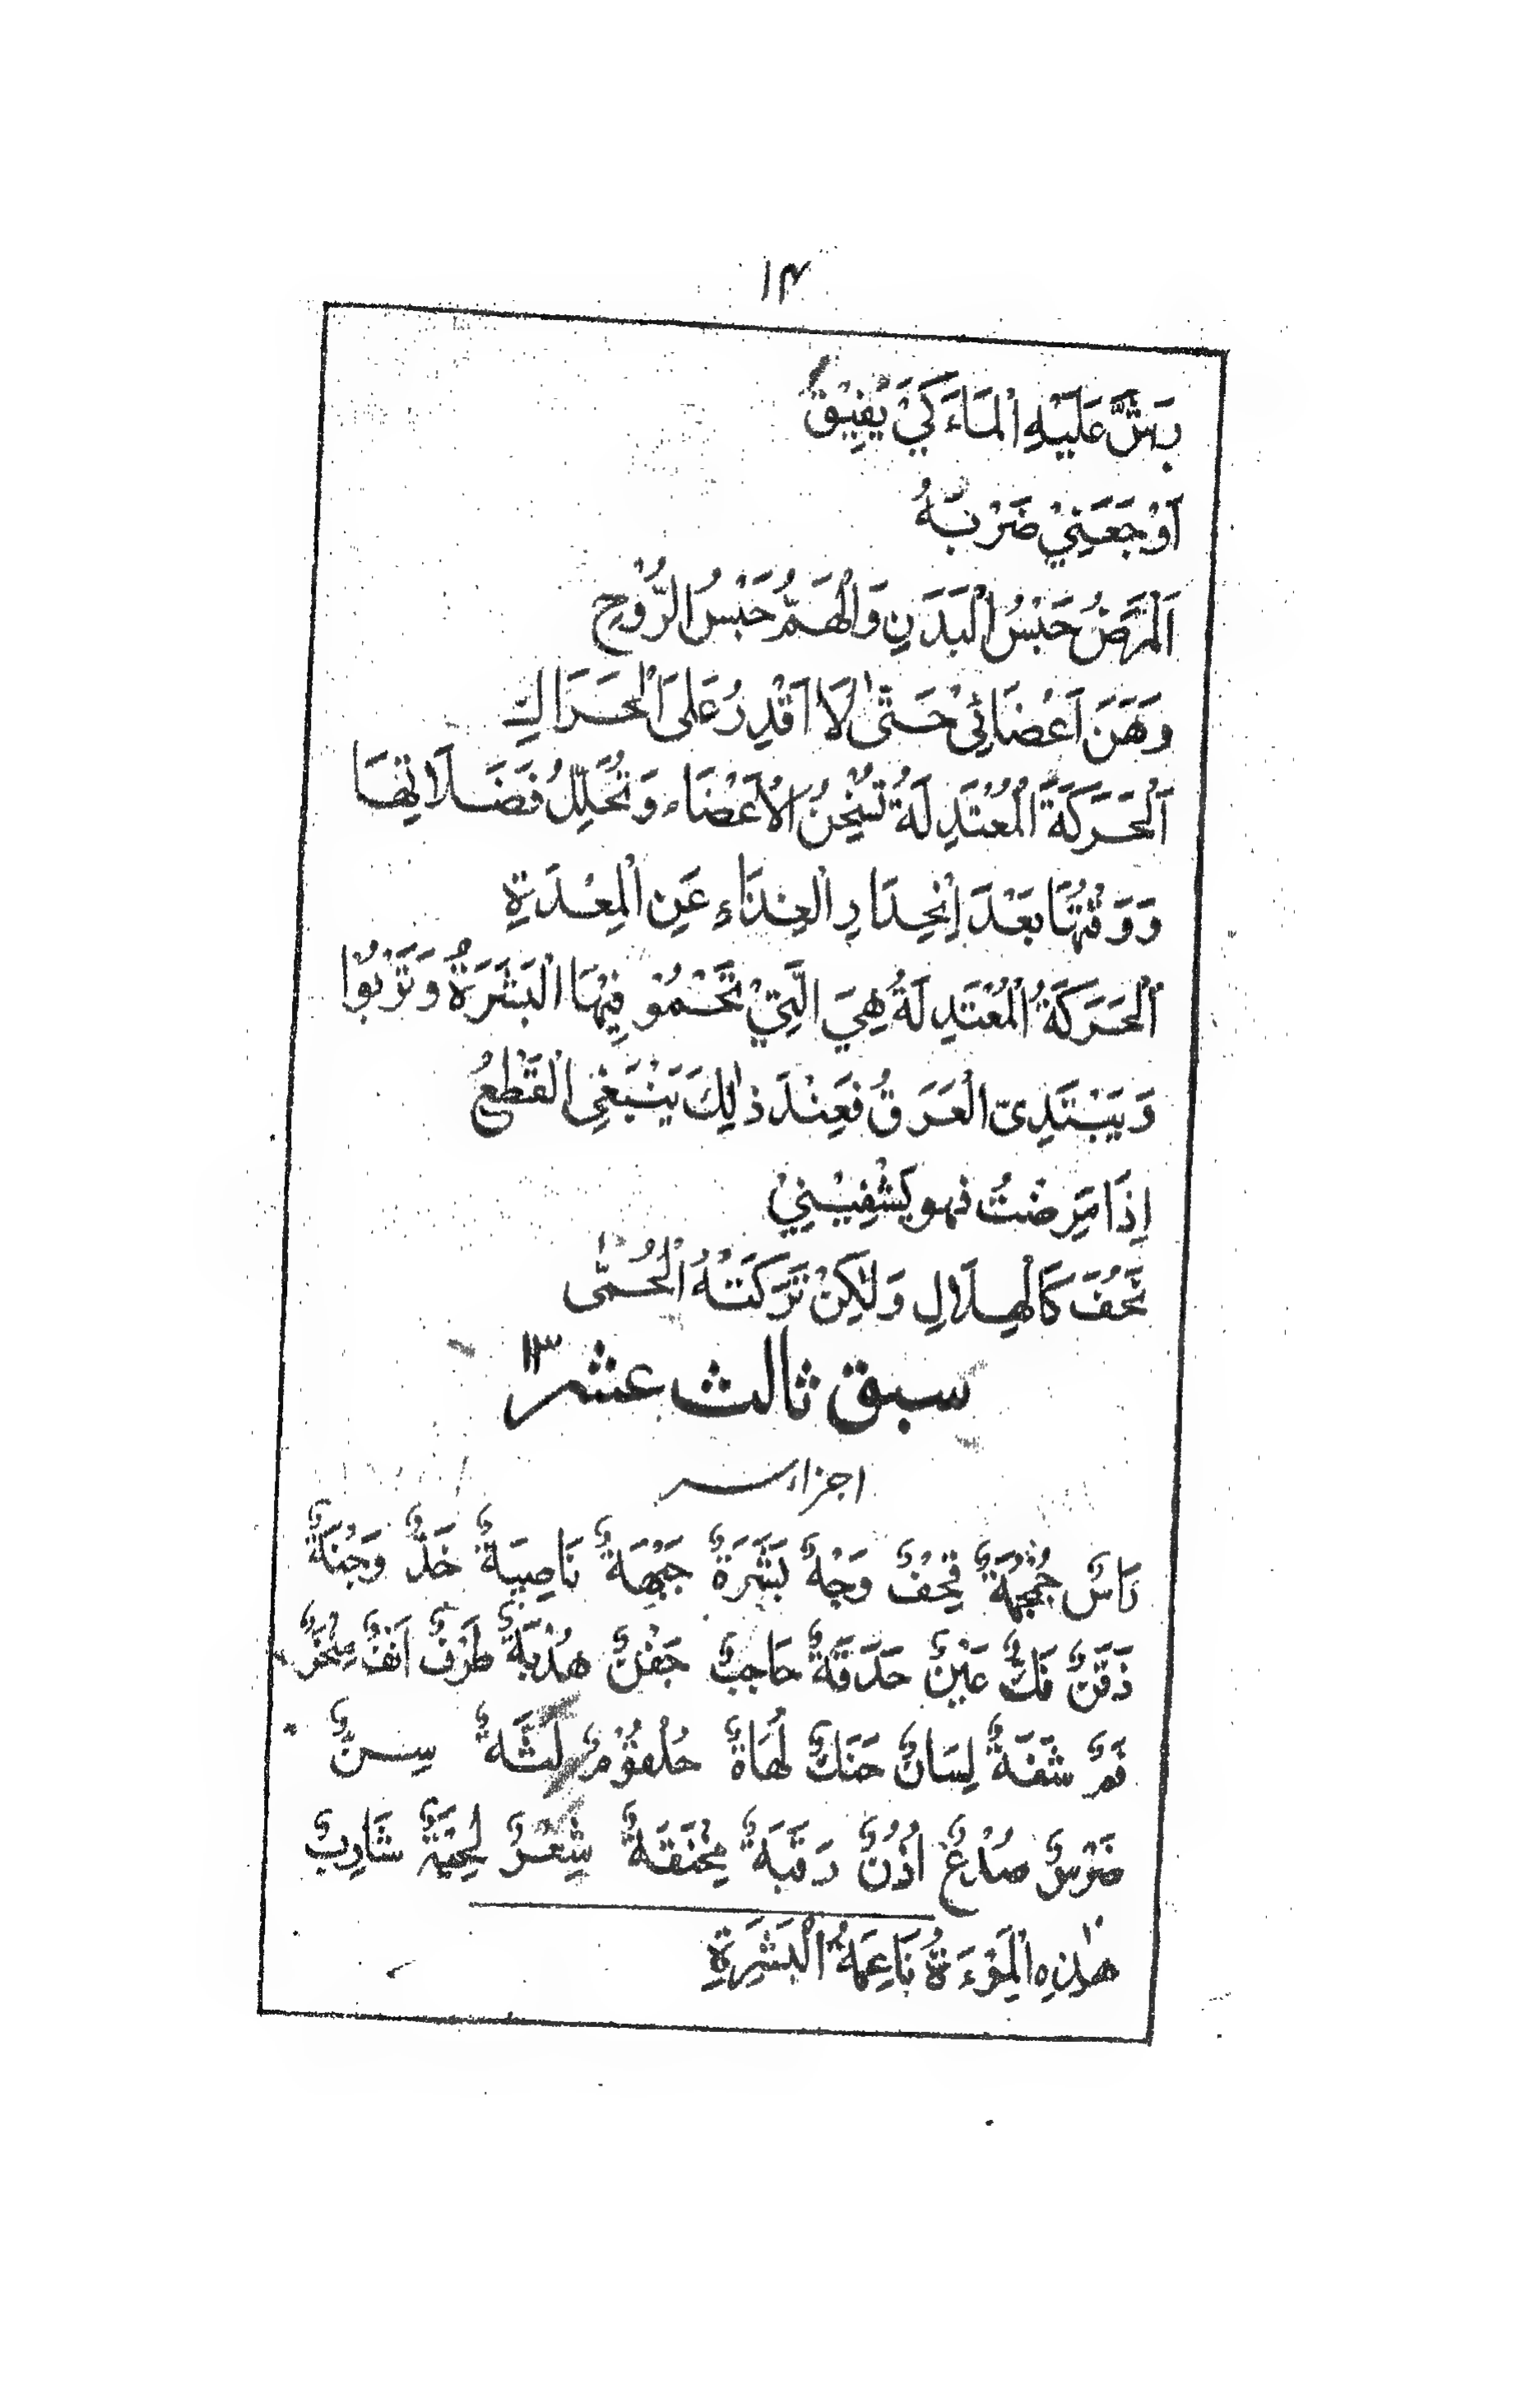 ۱۴
بَشَّ عَلَيْهِ الْمَاءَ كَيْ يُفِيْقَ
اَوْجَعَنِيْ ضَرْبُهُ
اَلْمَرَضُ حَبْسُ الْبَدَنِ وَالْهَمُّ حَبْسُ الرُّوْحِ
وَهَنَ اَعْضَائِیْ حَتّٰی لَا اَقْدِرُ عَلَی الْحَرَاكِ
اَلْحَرَكَةُ الْمُعْتَدِلَةُ تُسَخِّنُ الْاَعْضَاء وَتُحَلِّلُ فَضَلَاتِهَا
وَ وَقْتُهَا بَعْدَ اِنْحِدَارِ الْغِذَاءِ عَنِ الْمِعْدَةِ
اَلْحَرَكَةُ الْمُعْتَدِلَةُ هِيَ الَّتِيْ تَحْمُوْ فِيْهَا الْبَشَرَةُ وَتَرْبُوْا
وَيَبْتَدِیُٔ الْعَرَقُ فَعِنْدَ ذٰلِكَ يَنْبَغِی الْقَطْعُ
اِذَا مَرِضْتُ فهو يَشْفِيْنِيْ
نَحُفَ كَالْهِلَالِ وَلٰكِنْ تَرَكَتْهُ الْحُمّٰی
سبق ثالث عشر ۱۳
اجزاء سر
رَاسٌ جُمْجُمَةٌ قِحْفٌ وَجْهٌ بَشَرَةٌ جَبْهَةٌ نَاصِيَةٌ خَدٌّ وَجْنَةٌ
ذَقَنٌ فَكٌّ عَيْنٌ حَدَقَةٌ حَاجِبٌ جَفْنٌ هُدْبَةٌ طَرَفٌ اَنْفٌ مِنْخَرٌ
فَمٌ شَفَةٌ لِسَانٌ حَنَكٌ لَهَاةٌ حُلْقُوْمٌ لَثَةٌ سِنٌّ
ضَرْسٌ صُدْغٌ اُذُنٌ رَقَبَةٌ مِخْنَقَةٌ شَعْرٌ لِحْيَةٌ شَارِبٌ
هٰذِهِ الْمَرْءَةُ نَاعِمَةُ الْبَشَرَةِ